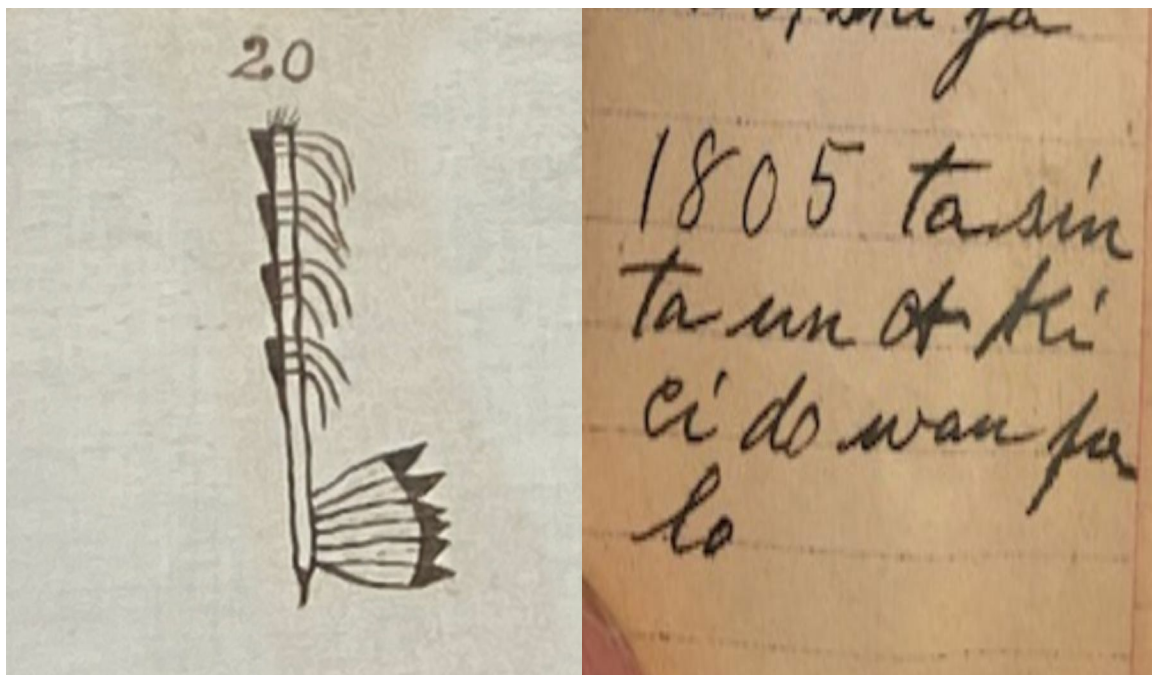 20
ja
1805 ta sin
ta un ot ki
ci do wan pe
lo